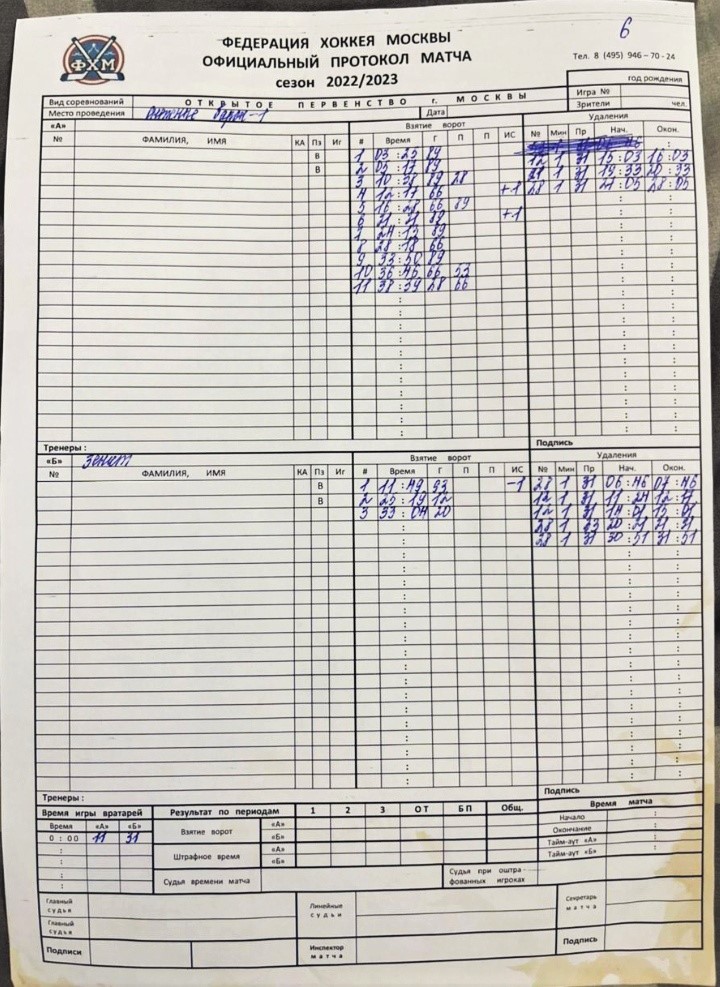 6
ФХМ
ФЕДЕРАЦИЯ ХОККЕЯ МОСКВЫ
ОФИЦИАЛЬНЫЙ ПРОТОКОЛ МАТЧА
сезон 2022/2023
Тел. 8 (495) 946-70-24
год рождения
Вид соревнований ОТКРЫТОЕ ПЕРВЕНСТВО г. МОСКВЫ Игра №
Место проведения Дата Зрители чел.
«А» Взятие ворот Удаления
№ ФАМИЛИЯ, ИМЯ КА Пз Иг # Время Г П П ИС № Мин Пр Нач. Окон.
В 1 03:25 89
В 2 05:17 89 12 1 31 15:03 16:03
3 10:38 89 28 21 1 31 19:33 20:33
4 12:17 66 +1 28 1 31 27:05 28:05
5 16:28 66 89
6 21:21 89 +1
7 24:13 89
8 28:18 66
9 33:50 89
10 36:45 66 53
11 38:39 28 66
Тренеры: Подпись
«Б» Зенит Взятие ворот Удаления
№ ФАМИЛИЯ, ИМЯ КА Пз Иг # Время Г П П ИС № Мин Пр Нач. Окон.
В 1 11:49 93 -1 28 1 31 06:46 07:46
В 2 25:19 12 12 1 31 11:24 12:17
3 33:04 20 12 1 31 14:01 15:01
28 1 23 20:21 21:21
38 1 31 30:51 31:51
Тренеры: Подпись
Время игры вратарей Результат по периодам 1 2 3 ОТ БП Общ. Время матча
Время «А» «Б» Взятие ворот «А» Начало :
0:00 11 31 «Б» Окончание :
Штрафное время «А» Тайм-аут «А» :
«Б» Тайм-аут «Б» :
Судья времени матча Судья при оштрафованных игроках
Главный судья Линейные судьи Секретарь матча
Главный судья
Подписи Инспектор матча Подпись